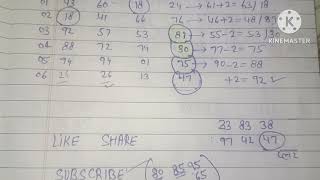 01 93 60 18 24 → 61+2 = 63/18
02 18 41 66 76 → 46+2 = 48/
KINEMASTER
03 92 57 53 81 → 55-2 = 53/
04 88 72 74 90 → 77-2 = 75
05 94 94 01 75 → 90-2 = 88
06 26 26 13 47 +2 = 92
33 83 38
LIKE SHARE 97 42 47
SUBSCRIBE 80 85 95
65